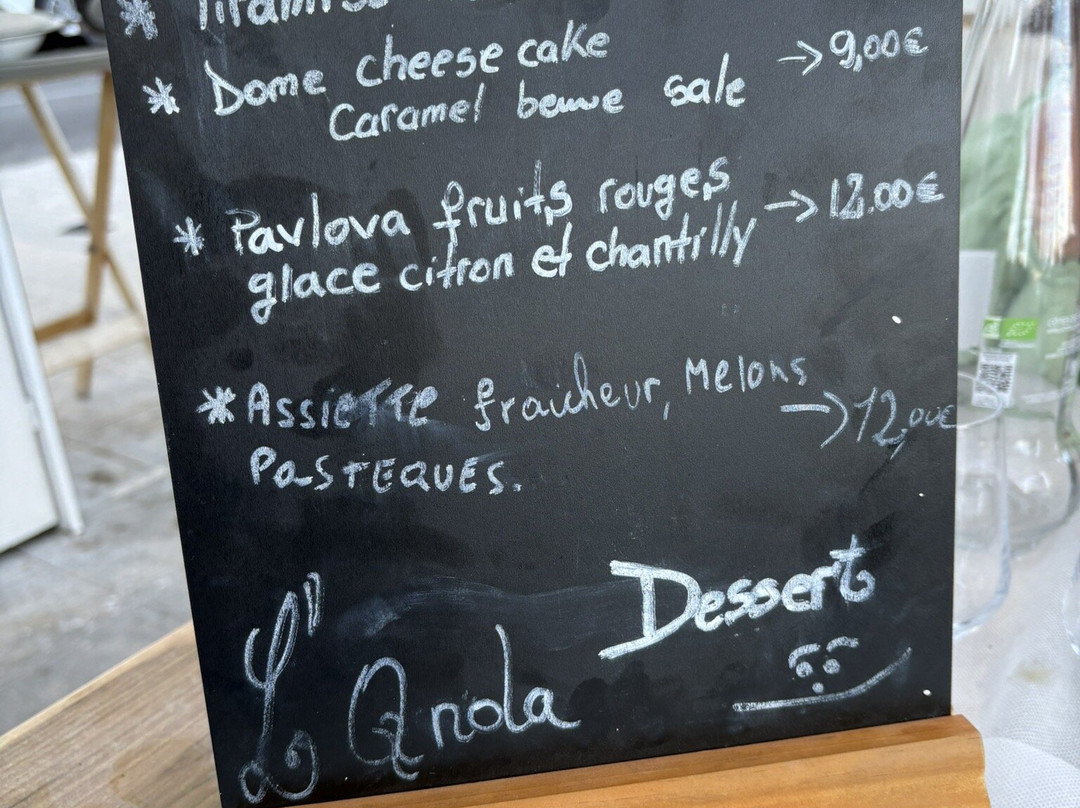 * Dome cheese cake → 9,00€
Caramel beurre sale
* Pavlova fruits rouges → 12.00€
glace citron et chantilly
* Assiette fraicheur, Melons → 12,00€
PasTEQUES.
Dessert
L"